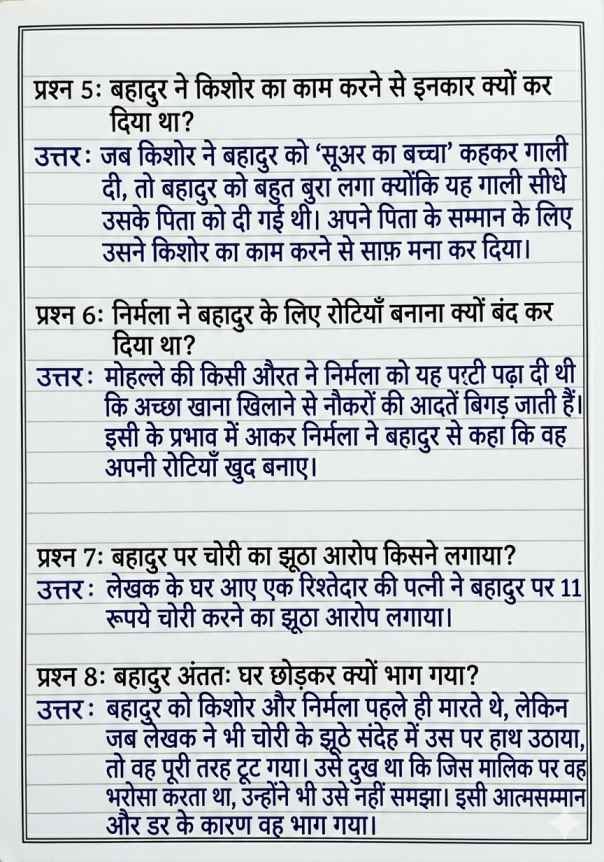 प्रश्न 5: बहादुर ने किशोर का काम करने से इनकार क्यों कर
दिया था?
उत्तर: जब किशोर ने बहादुर को ‘सूअर का बच्चा’ कहकर गाली
दी, तो बहादुर को बहुत बुरा लगा क्योंकि यह गाली सीधे
उसके पिता को दी गई थी। अपने पिता के सम्मान के लिए
उसने किशोर का काम करने से साफ़ मना कर दिया।
प्रश्न 6: निर्मला ने बहादुर के लिए रोटियाँ बनाना क्यों बंद कर
दिया था?
उत्तर: मोहल्ले की किसी औरत ने निर्मला को यह पट्टी पढ़ा दी थी
कि अच्छा खाना खिलाने से नौकरों की आदतें बिगड़ जाती हैं।
इसी के प्रभाव में आकर निर्मला ने बहादुर से कहा कि वह
अपनी रोटियाँ खुद बनाए।
प्रश्न 7: बहादुर पर चोरी का झूठा आरोप किसने लगाया?
उत्तर: लेखक के घर आए एक रिश्तेदार की पत्नी ने बहादुर पर 11
रूपये चोरी करने का झूठा आरोप लगाया।
प्रश्न 8: बहादुर अंततः घर छोड़कर क्यों भाग गया?
उत्तर: बहादुर को किशोर और निर्मला पहले ही मारते थे, लेकिन
जब लेखक ने भी चोरी के झूठे संदेह में उस पर हाथ उठाया,
तो वह पूरी तरह टूट गया। उसे दुख था कि जिस मालिक पर वह
भरोसा करता था, उन्होंने भी उसे नहीं समझा। इसी आत्मसम्मान
और डर के कारण वह भाग गया।